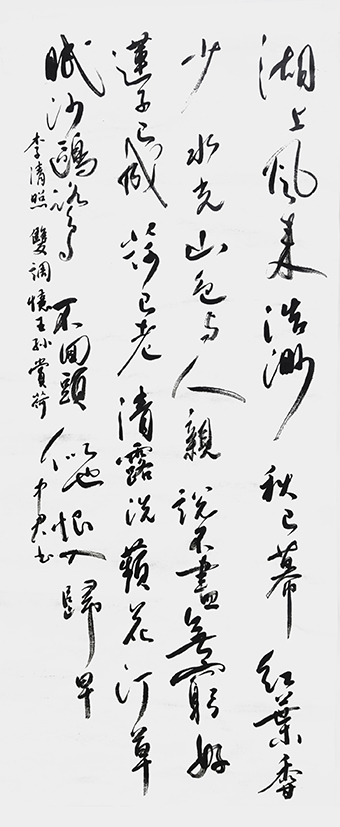 湖上風來浩渺秋已幕紅葉香
少水光山色与人親說不盡無窮好
蓮子已成荷已老清露洗蘋花汀草
眠沙鷗鷺不回頭似也恨人歸早
李清照雙調憶王孫賞荷